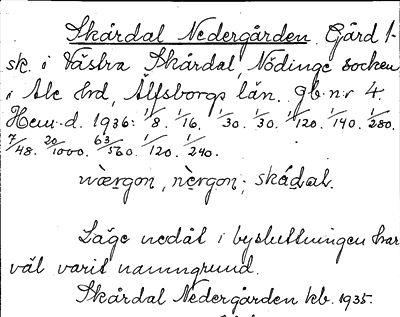 Skårdal Nedergården. Gård 1
sk. i Västra Skårdal, Nödinge socken
i Ale hrd, Älfsborgs län. gb.nr 4.
Hem.d. 1936: 1/8. 1/16. 1/30. 1/30. 1/120. 1/140. 1/280.
7/48. 20/1000. 63/560. 1/120. 1/240.
nærgon, nèrgon; skádal.
Läge nedåt i bysluttningen har
väl varit namngrund.
Skårdal Nedergården kb. 1935.